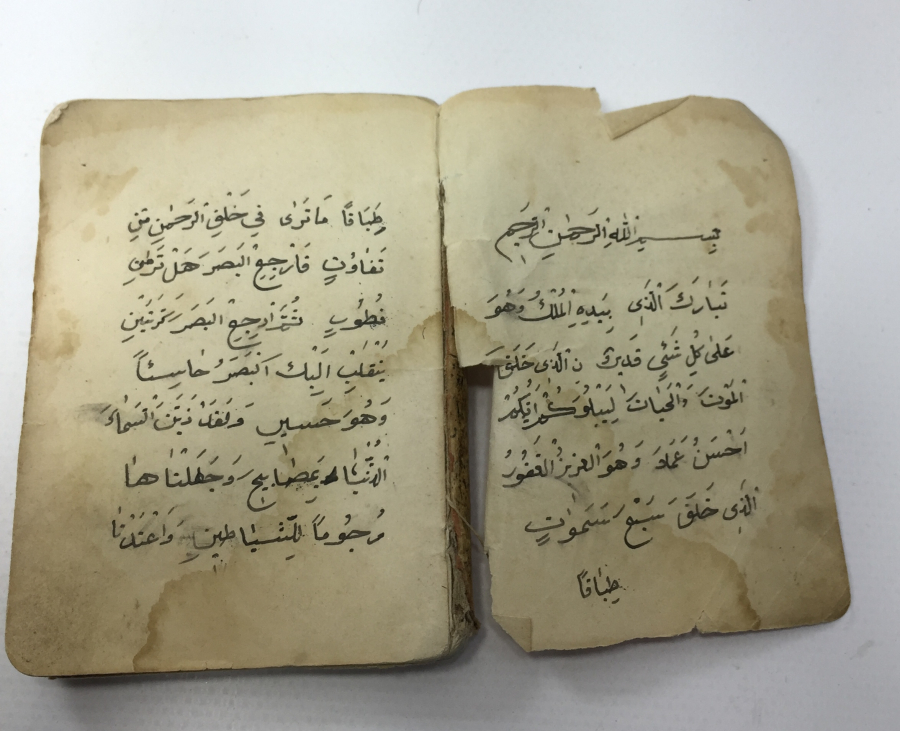 بسم الله الرحمن الرحيم
تَبٰارَكَ الَّذٖى بِيَدِهِ الْمُلْكُ وَهُوَ
عَلٰى كُلِّ شَىْءٍ قَدٖيرٌ نِ الَّذٖى خَلَقَ
الْمَوْتَ وَالْحَيٰاتَ لِيَبْلُوَكُمْ اَيُّكُمْ
اَحْسَنُ عَمَلاً وَهُوَ الْعَزٖيزُ الْغَفُورُ
الَّذٖى خَلَقَ سَبْعَ سَمَوٰاتٍ
طِبٰاقًا
طِبَاقًا مَا تَرٰى فِى خَلْقِ الرَّحْمٰنِ مِنْ
تَفَاوُتٍ فَارْجِعِ الْبَصَرَ هَلْ تَرٰى مِنْ
فُطُورٍ ثُمَّ ارْجِعِ الْبَصَرَ كَرَّتَيْنِ
يَنْقَلِبْ اِلَيْكَ الْبَصَرُ خٰاسِئاً
وَهُوَ حَسٖيرٌ وَلَقَدْ زَيَّنَّا السَّمٰاءَ
الدُّنْيٰا بِمَصٰابٖيحَ وَجَعَلْنٰاهٰا
رُجُوماً لِلشَّيٰاطٖينِ وَاَعْتَدْنٰا